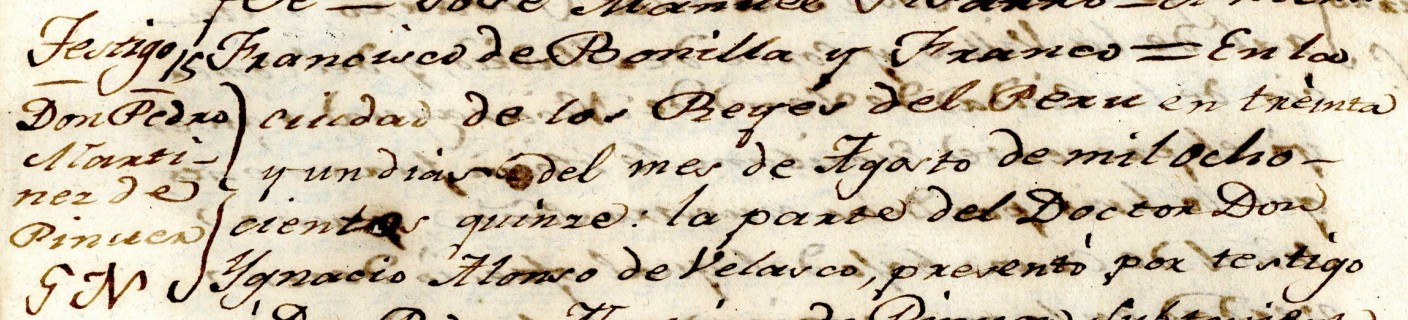 José Manuel
Testigo 15
Don Pedro
Marti-
nez de
Pinuer
G N
Francisco de Bonilla y Franco = En la
ciudad de los Reyes del Peru en treinta
y un dias del mes de Agosto de mil ocho-
cientos quinze: la parte del Doctor Don
Ygnacio Alonso de Velasco, presentó por testigo
á Don Pedro Martinez de Pinuer